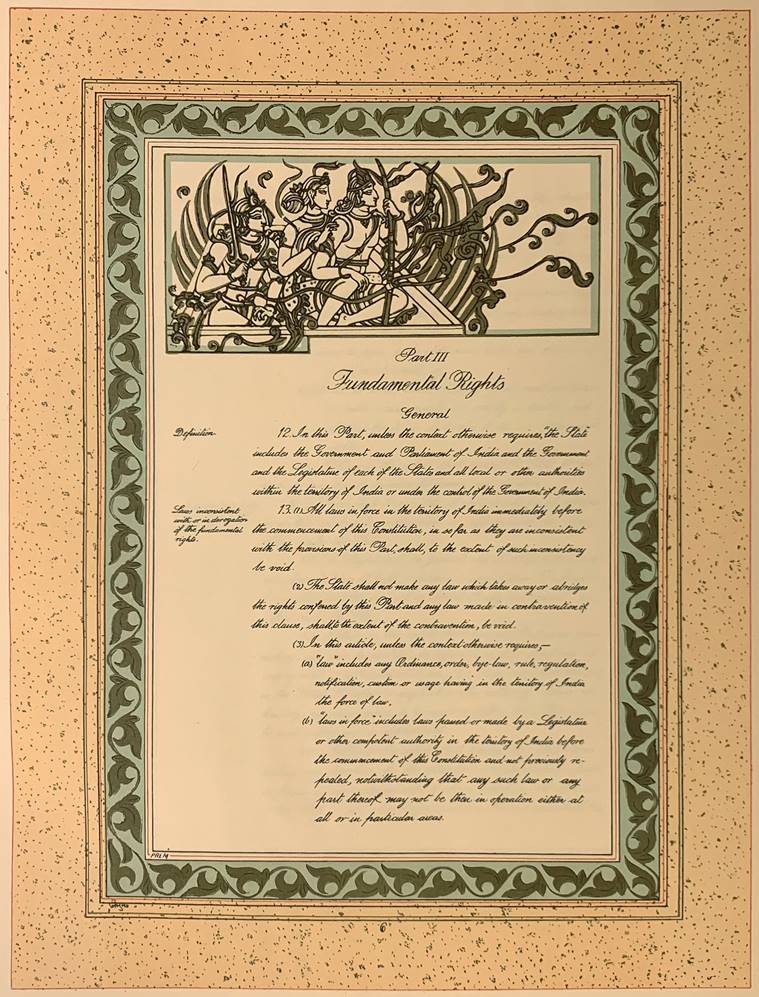 Part III
Fundamental Rights
General
Definition.
12. In this Part, unless the context otherwise requires, "the State"
includes the Government and Parliament of India and the Government
and the Legislature of each of the States and all local or other authorities
within the territory of India or under the control of the Government of India.
Laws inconsistent
with or in derogation
of the fundamental
rights.
13. (1) All laws in force in the territory of India immediately before
the commencement of this Constitution, in so far as they are inconsistent
with the provisions of this Part, shall, to the extent of such inconsistency
be void.
(2) The State shall not make any law which takes away or abridges
the rights conferred by this Part and any law made in contravention of
this clause, shall, to the extent of the contravention, be void.
(3) In this article, unless the context otherwise requires,—
(a) "law" includes any Ordinance, order, bye-law, rule, regulation,
notification, custom or usage having in the territory of India
the force of law,
(b) "laws in force" includes laws passed or made by a Legislature
or other competent authority in the territory of India before
the commencement of this Constitution and not previously re-
pealed, notwithstanding that any such law or any
part thereof may not be then in operation either at
all or in particular areas.
6